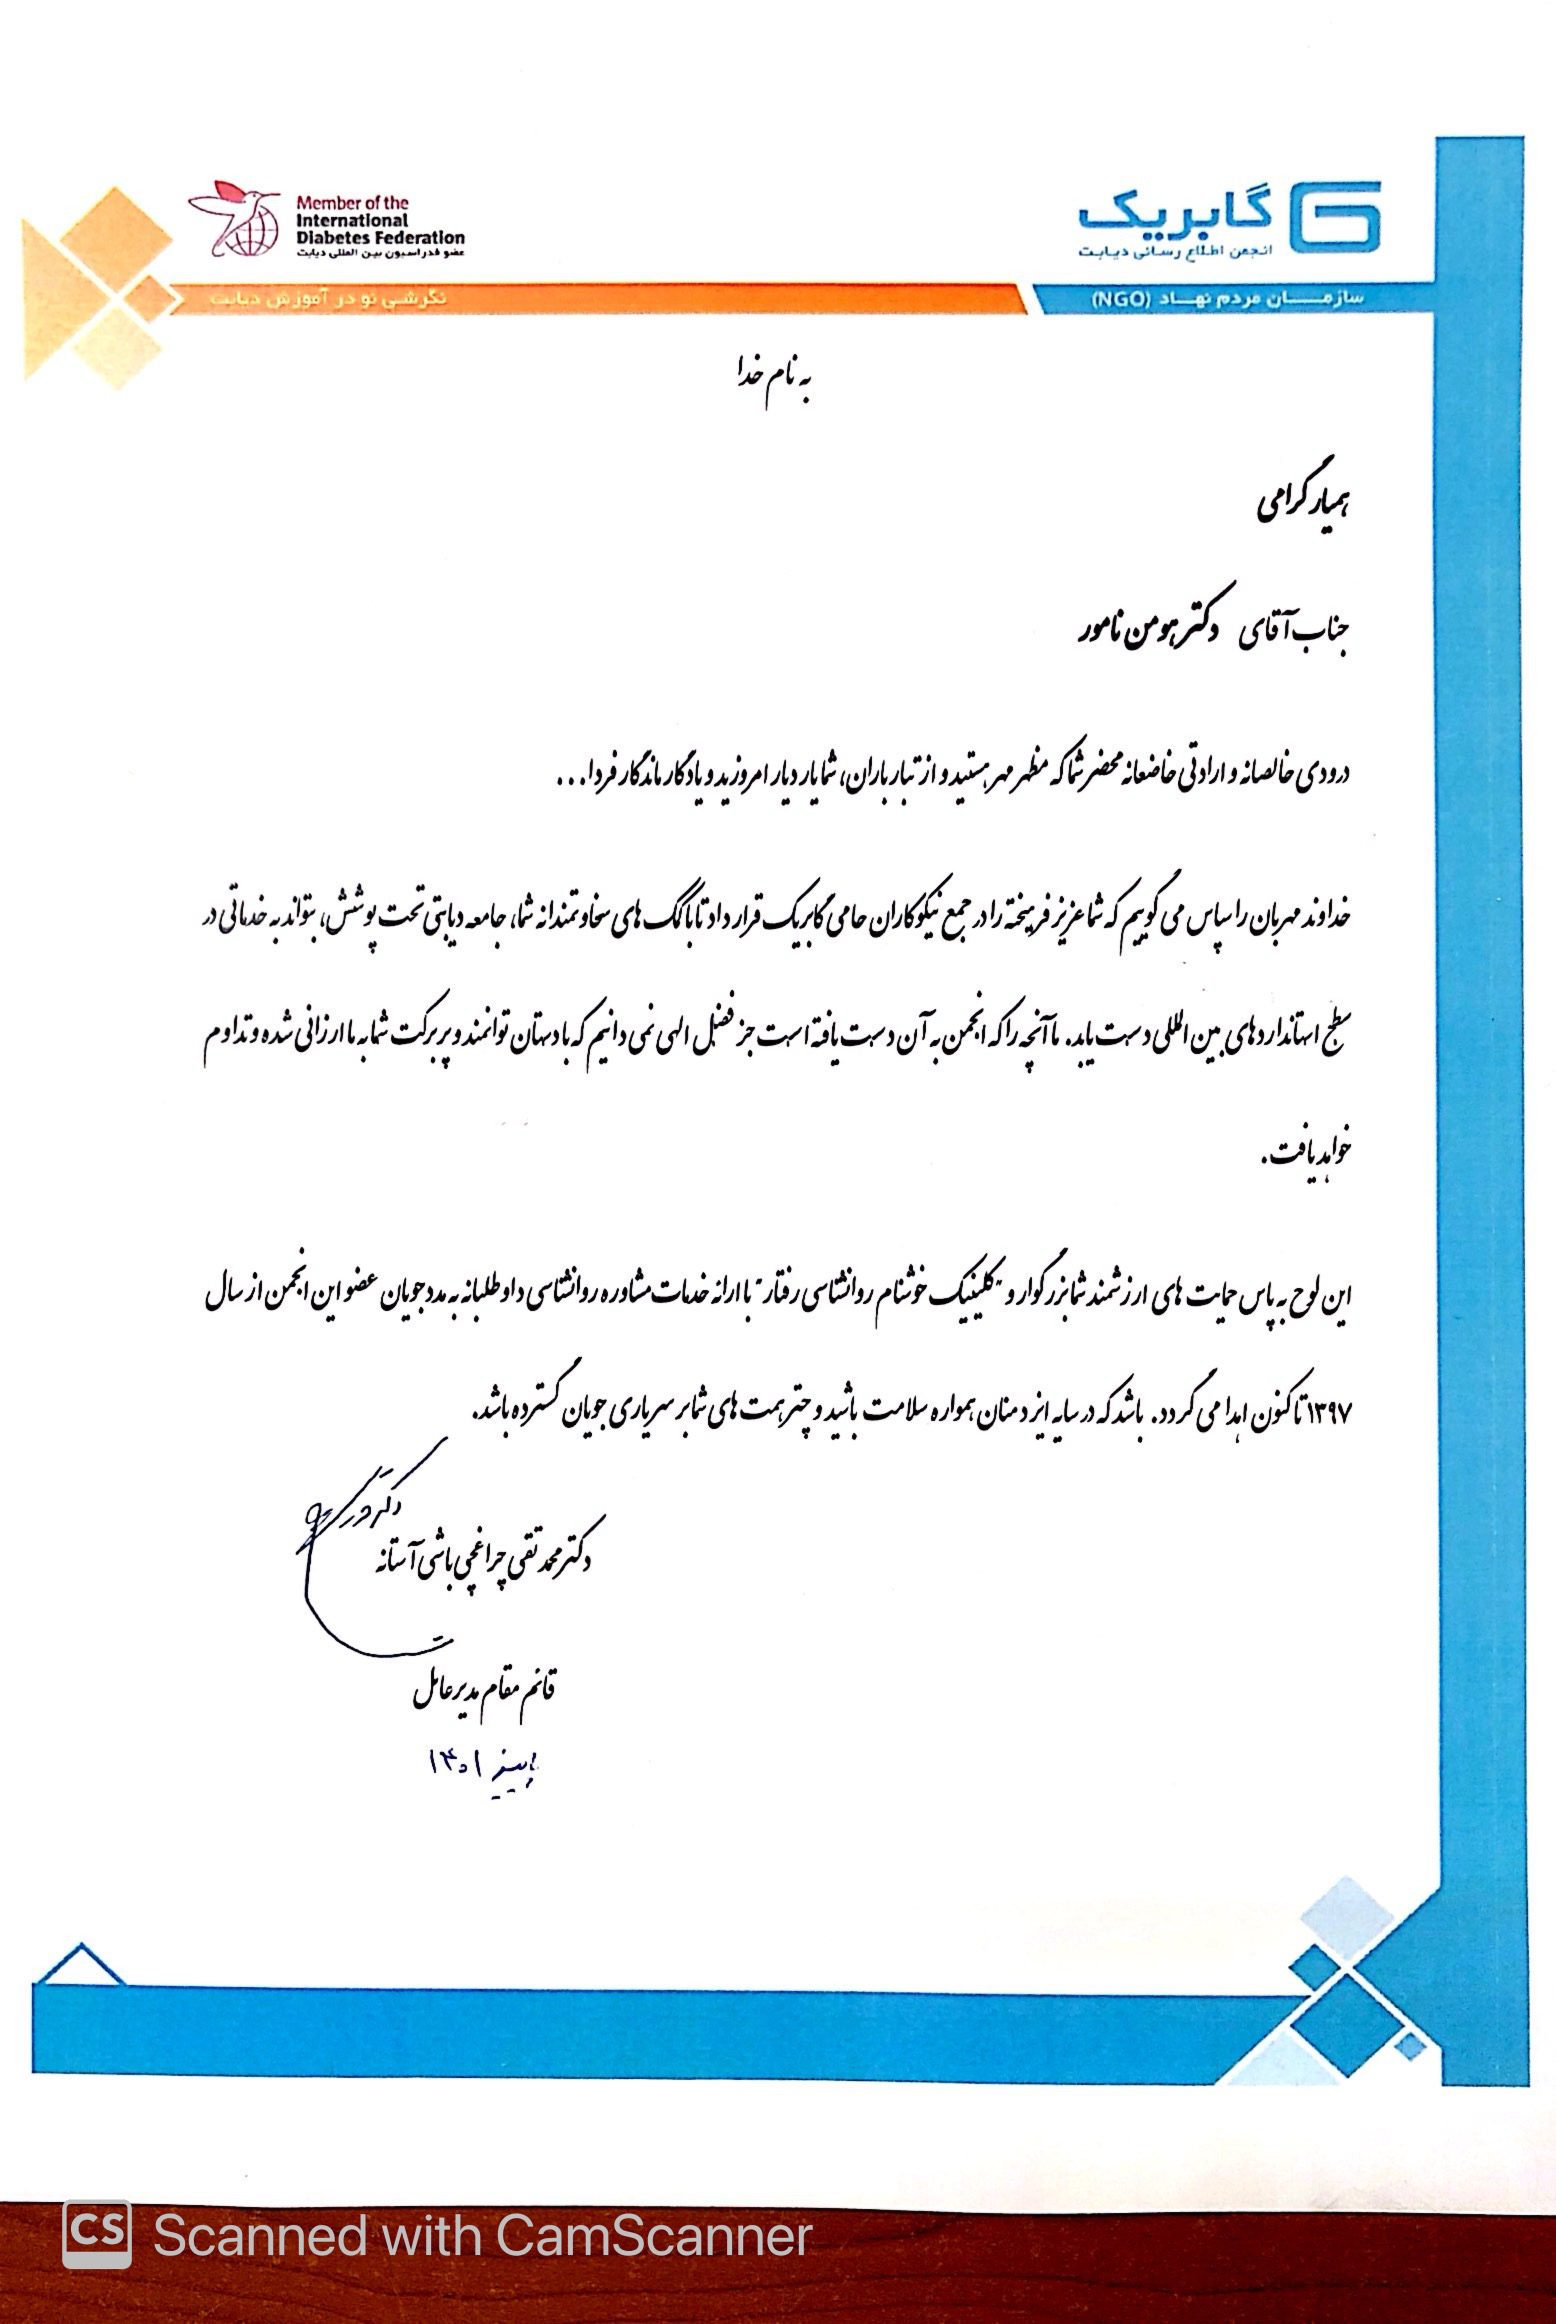 Member of the
International
Diabetes Federation
عضو فدراسیون بین المللی دیابت
گابریک
انجمن اطلاع رسانی دیابت
نگرشی نو در آموزش دیابت
سازمان مردم نهاد (NGO)
به نام خدا
همیار گرامی
جناب آقای دکتر هومن نامور
درودی خالصانه و ارادتی خاضعانه محضر شما که مظهر مهر هستید و از تبار باران، شما یار دیار امروزید و یادگار ماندگار فردا...
خداوند مهربان را سپاس می گوییم که شما عزیز فرهیخته را در جمع نیکوکاران حامی گابریک قرار داد تا با کمک های سخاوتمندانه شما، جامعه دیابتی تحت پوشش، بتواند به خدماتی در
سطح استانداردهای بین المللی دست یابد. ما آنچه را که انجمن به آن دست یافته است جز فضل الهی نمی دانیم که با دستان توانمند و پر برکت شما به ما ارزانی شده و تداوم
خواهد یافت.
این لوح به پاس حمایت های ارزشمند شما بزرگوار و "کلینیک خوشنام روانشناسی رفتار" با ارائه خدمات مشاوره روانشناسی داوطلبانه به مددجویان عضو این انجمن از سال
۱۳۹۷ تا کنون اهدا می گردد. باشد که در سایه ایزد منان همواره سلامت باشید و چتر همت های شما بر سر یاری جویان گسترده باشد.
دکتر محمد تقی چراغچی باشی آستانه
قائم مقام مدیر عامل
پاییز ۱۴۰۱
CS Scanned with CamScanner